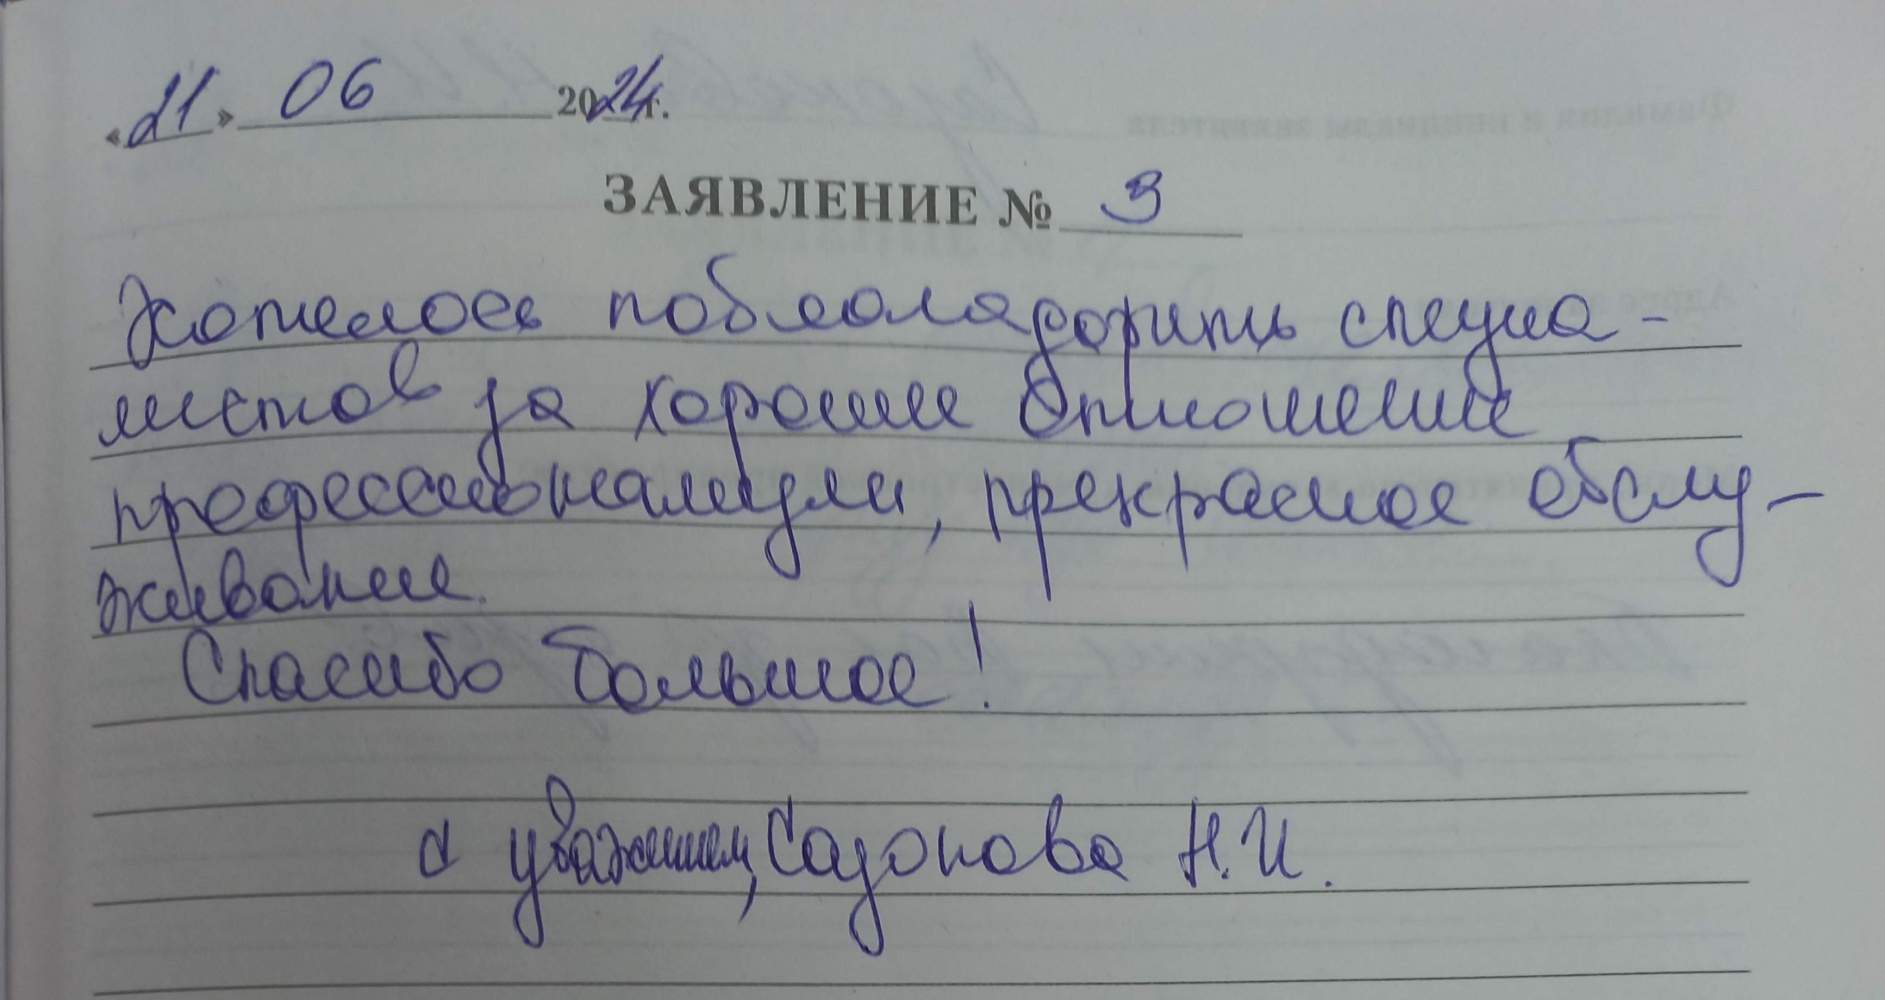 «21» 06 2024 г.
ЗАЯВЛЕНИЕ № 3
Хотелось поблаголадорить специа-
листов за хорошее отношение
профессионализм, прекрасное обслу-
живание.
Спасибо большое!
с уважением, Сазонова Н.И.